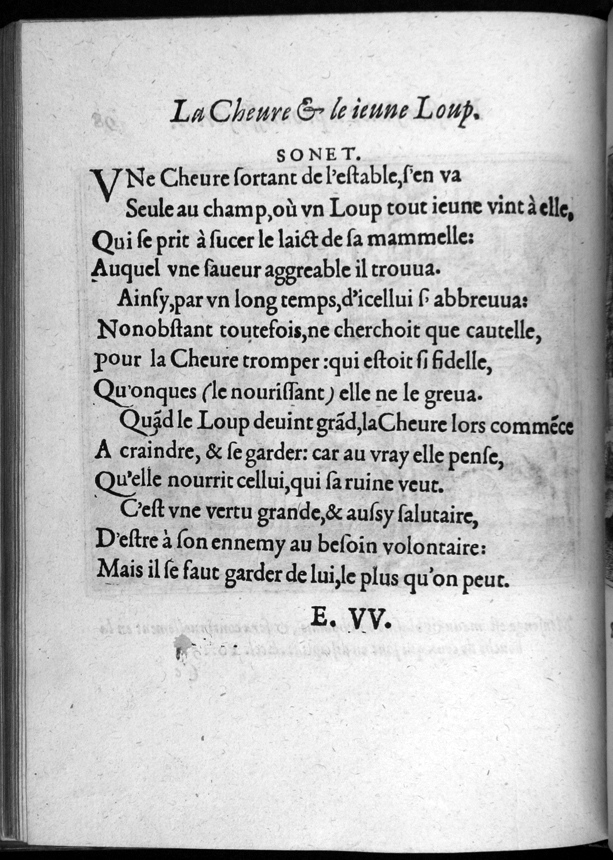 La Cheure & le ieune Loup.
SONET.
VNe Cheure ſortant de l'eſtable, ſ'en va
Seule au champ, où vn Loup tout ieune vint à elle,
Qui ſe prit à ſucer le laict de ſa mammelle:
Auquel vne ſaueur aggreable il trouua.
Ainſy, par vn long temps, d'icellui ſ' abbreuua:
Nonobſtant toutefois, ne cherchoit que cautelle,
pour la Cheure tromper: qui eſtoit ſi fidelle,
Qu'onques (le nouriſſant) elle ne le greua.
Quãd le Loup deuint grãd, la Cheure lors commẽce
A craindre, & ſe garder: car au vray elle penſe,
Qu'elle nourrit cellui, qui ſa ruine veut.
C'eſt vne vertu grande, & auſsy ſalutaire,
D'eſtre à ſon ennemy au beſoin volontaire:
Mais il ſe faut garder de lui, le plus qu'on peut.
E. VV.